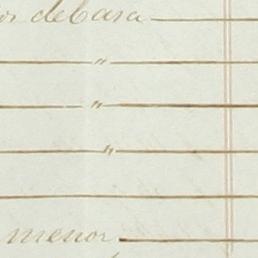 de basa
"
"
"
menor